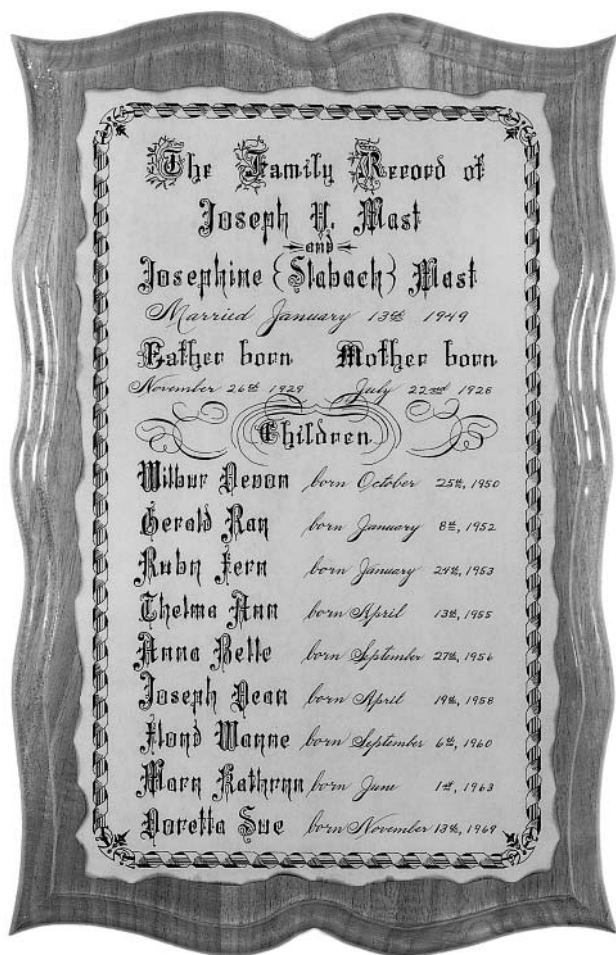 The Family Record of
Joseph V. Mast
and
Josephine {Slabach} Mast
Married January 13th 1949
Father born Mother born
November 26th 1929 July 22nd 1928
Children
Wilbur Devon born October 25th, 1950
Gerald Ray born January 8th, 1952
Ruby Fern born January 24th, 1953
Thelma Ann born April 13th, 1955
Anna Belle born September 27th, 1956
Joseph Dean born April 19th, 1958
Floyd Wayne born September 6th, 1960
Mary Kathryn born June 1st, 1963
Doretta Sue born November 13th, 1969